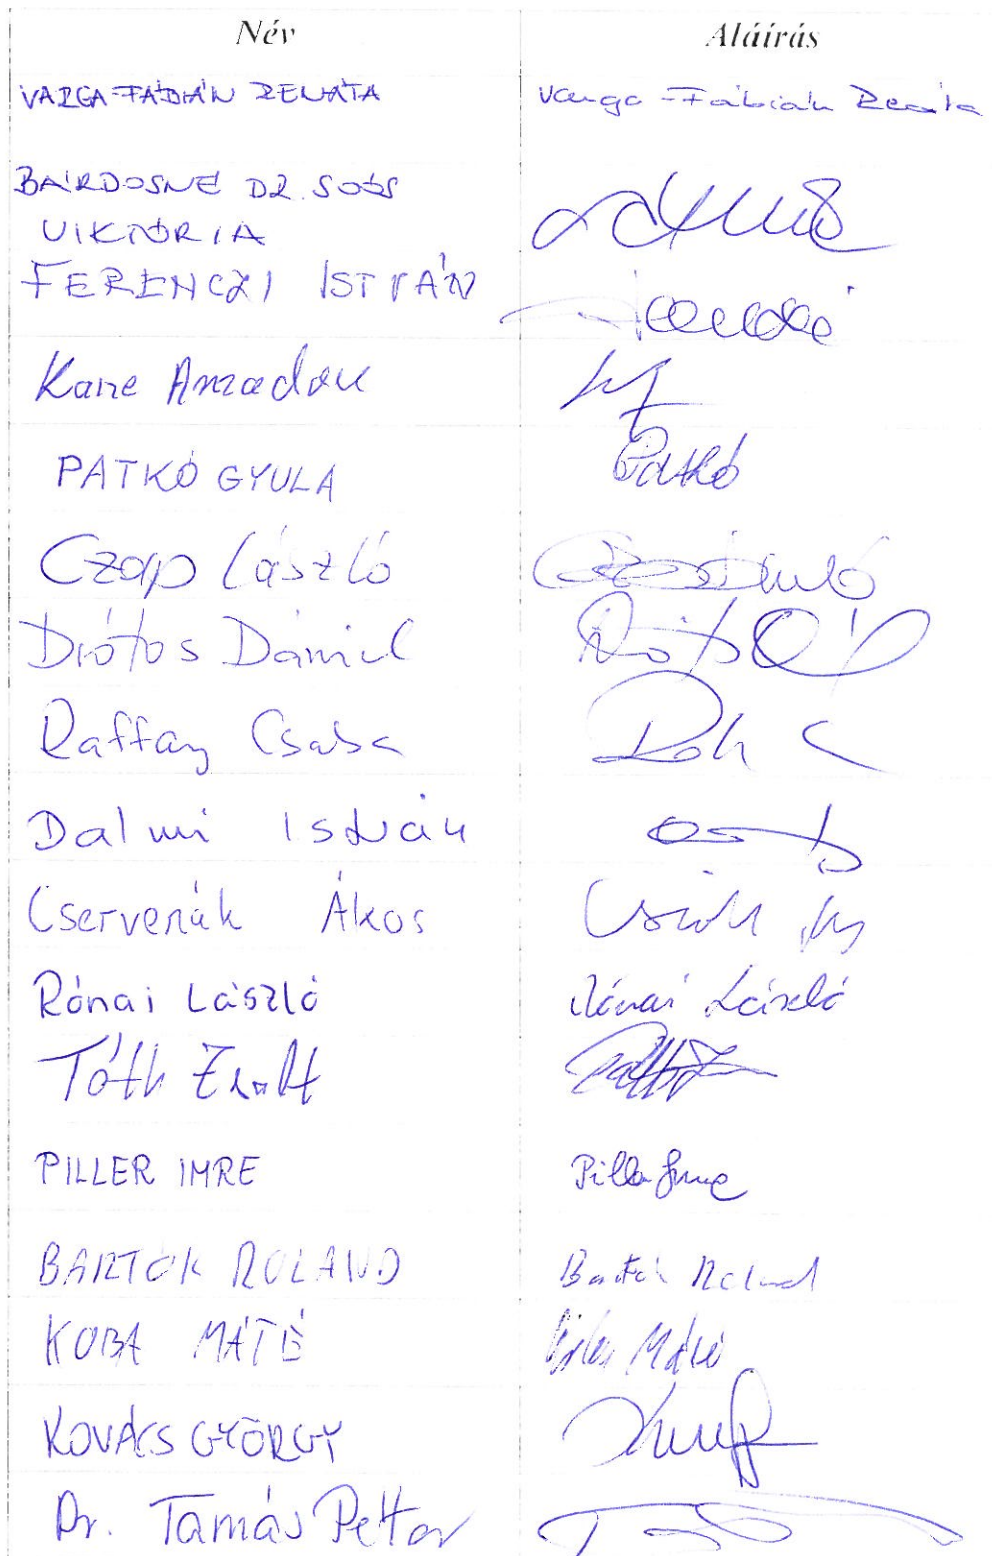 Név Aláírás
VARGA-FÁBIÁN RENÁTA Varga-Fábián Renáta
BÁRDOSNÉ DR. SOÓS
VIKTÓRIA
FERENCZI ISTVÁN
Kane Amadou
PATKÓ GYULA Patkó
Czap László
Drótos Dániel
Raffay Csaba
Dalmi István
Cservenák Ákos
Rónai László Rónai László
Tóth Zsolt
PILLER IMRE Piller Imre
BARTÓK ROLAND Bartók Roland
KOBA MÁTÉ Máté
KOVÁCS GYÖRGY
Dr. Tamás Péter